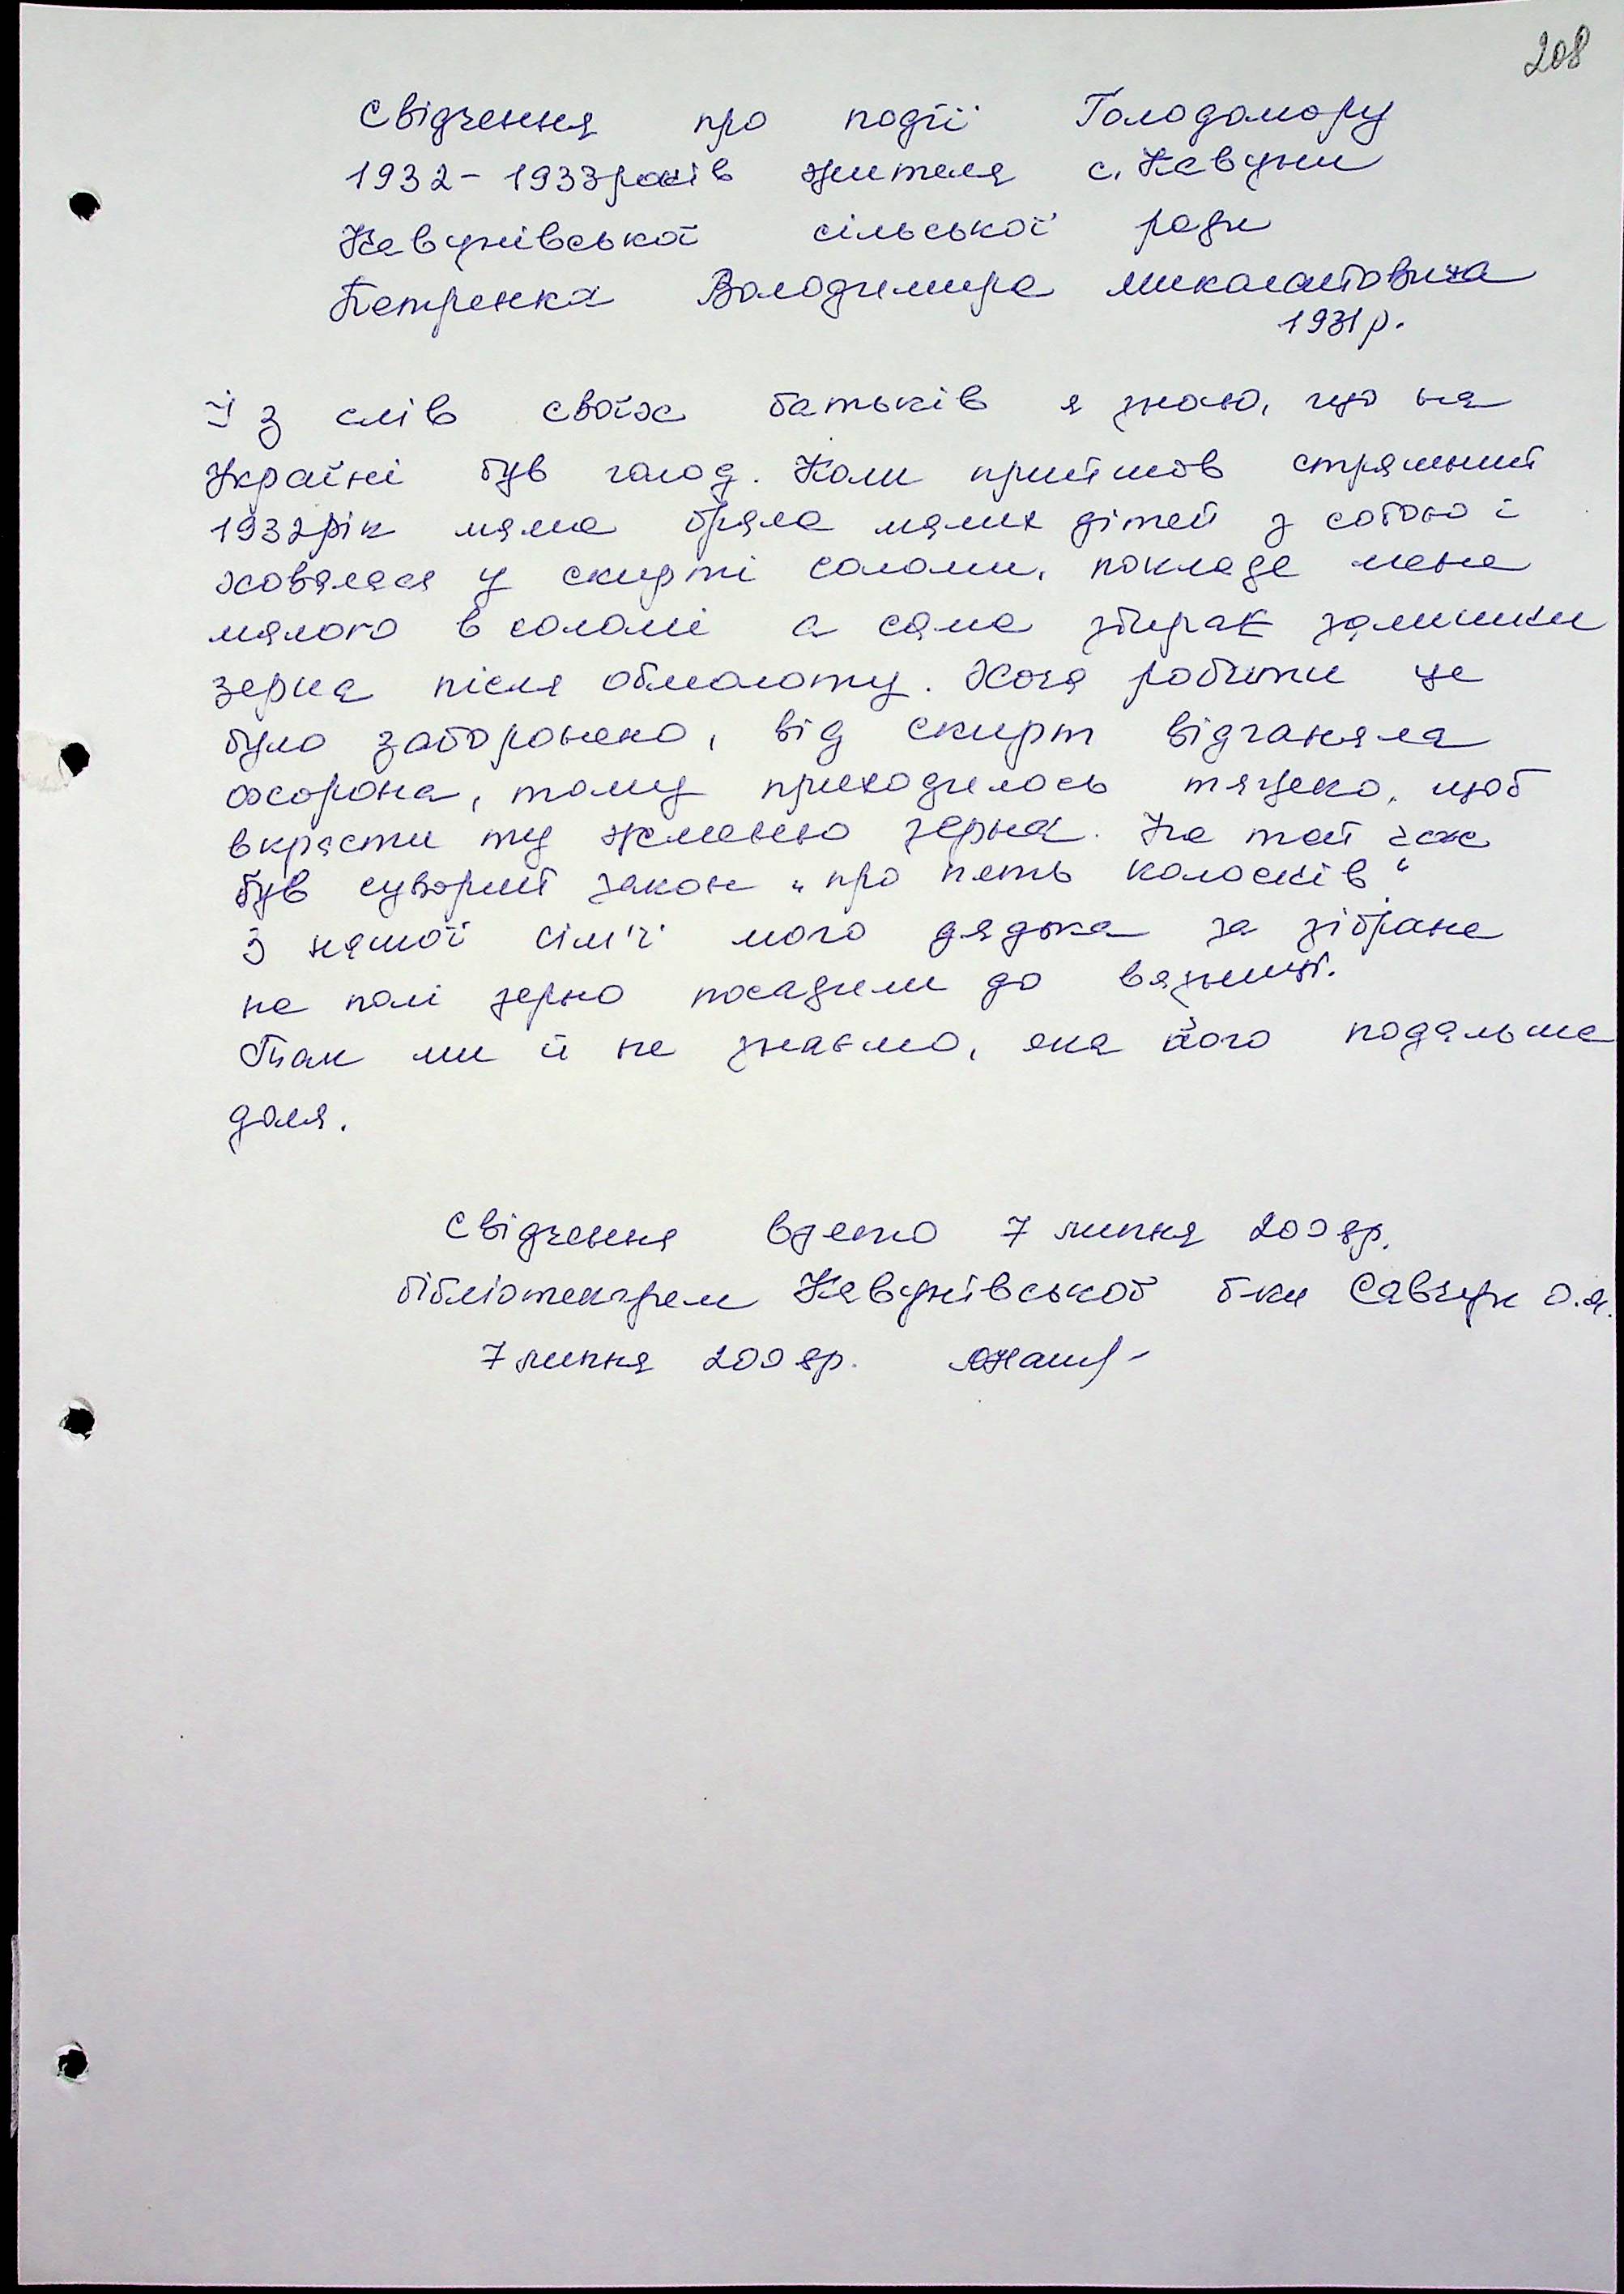 208
Свідчення про події Голодомору
1932-1933років жителя с. Кавуни
Кавунівської сільської ради
Петренка Володимира Миколайовича
1931р.
Із слів своїх батьків я знаю, що на
Україні був голод. Коли прийшов страшний
1932рік мама брала малих дітей з собою і
ховалася у скирті соломи, покладе мене
малого в соломі а сама збирає залишки
зерна після обмолоту. Хоча робити це
було заборонено, від скирт відганяла
охорона, тому приходилось тяжко, щоб
вкрасти ту жменьо зерна. На той час
був суворий закон „про пять колосків"
З нашої сім'ї мого дядька за зібране
на полі зерно посадили до вязниці.
Так ми й не знаємо, яка його подальша
доля.
Свідчення взято 7 липня 2008р.
бібліотекарем Кавунівської б-ки Савчук О.Я.
7 липня 2008р.